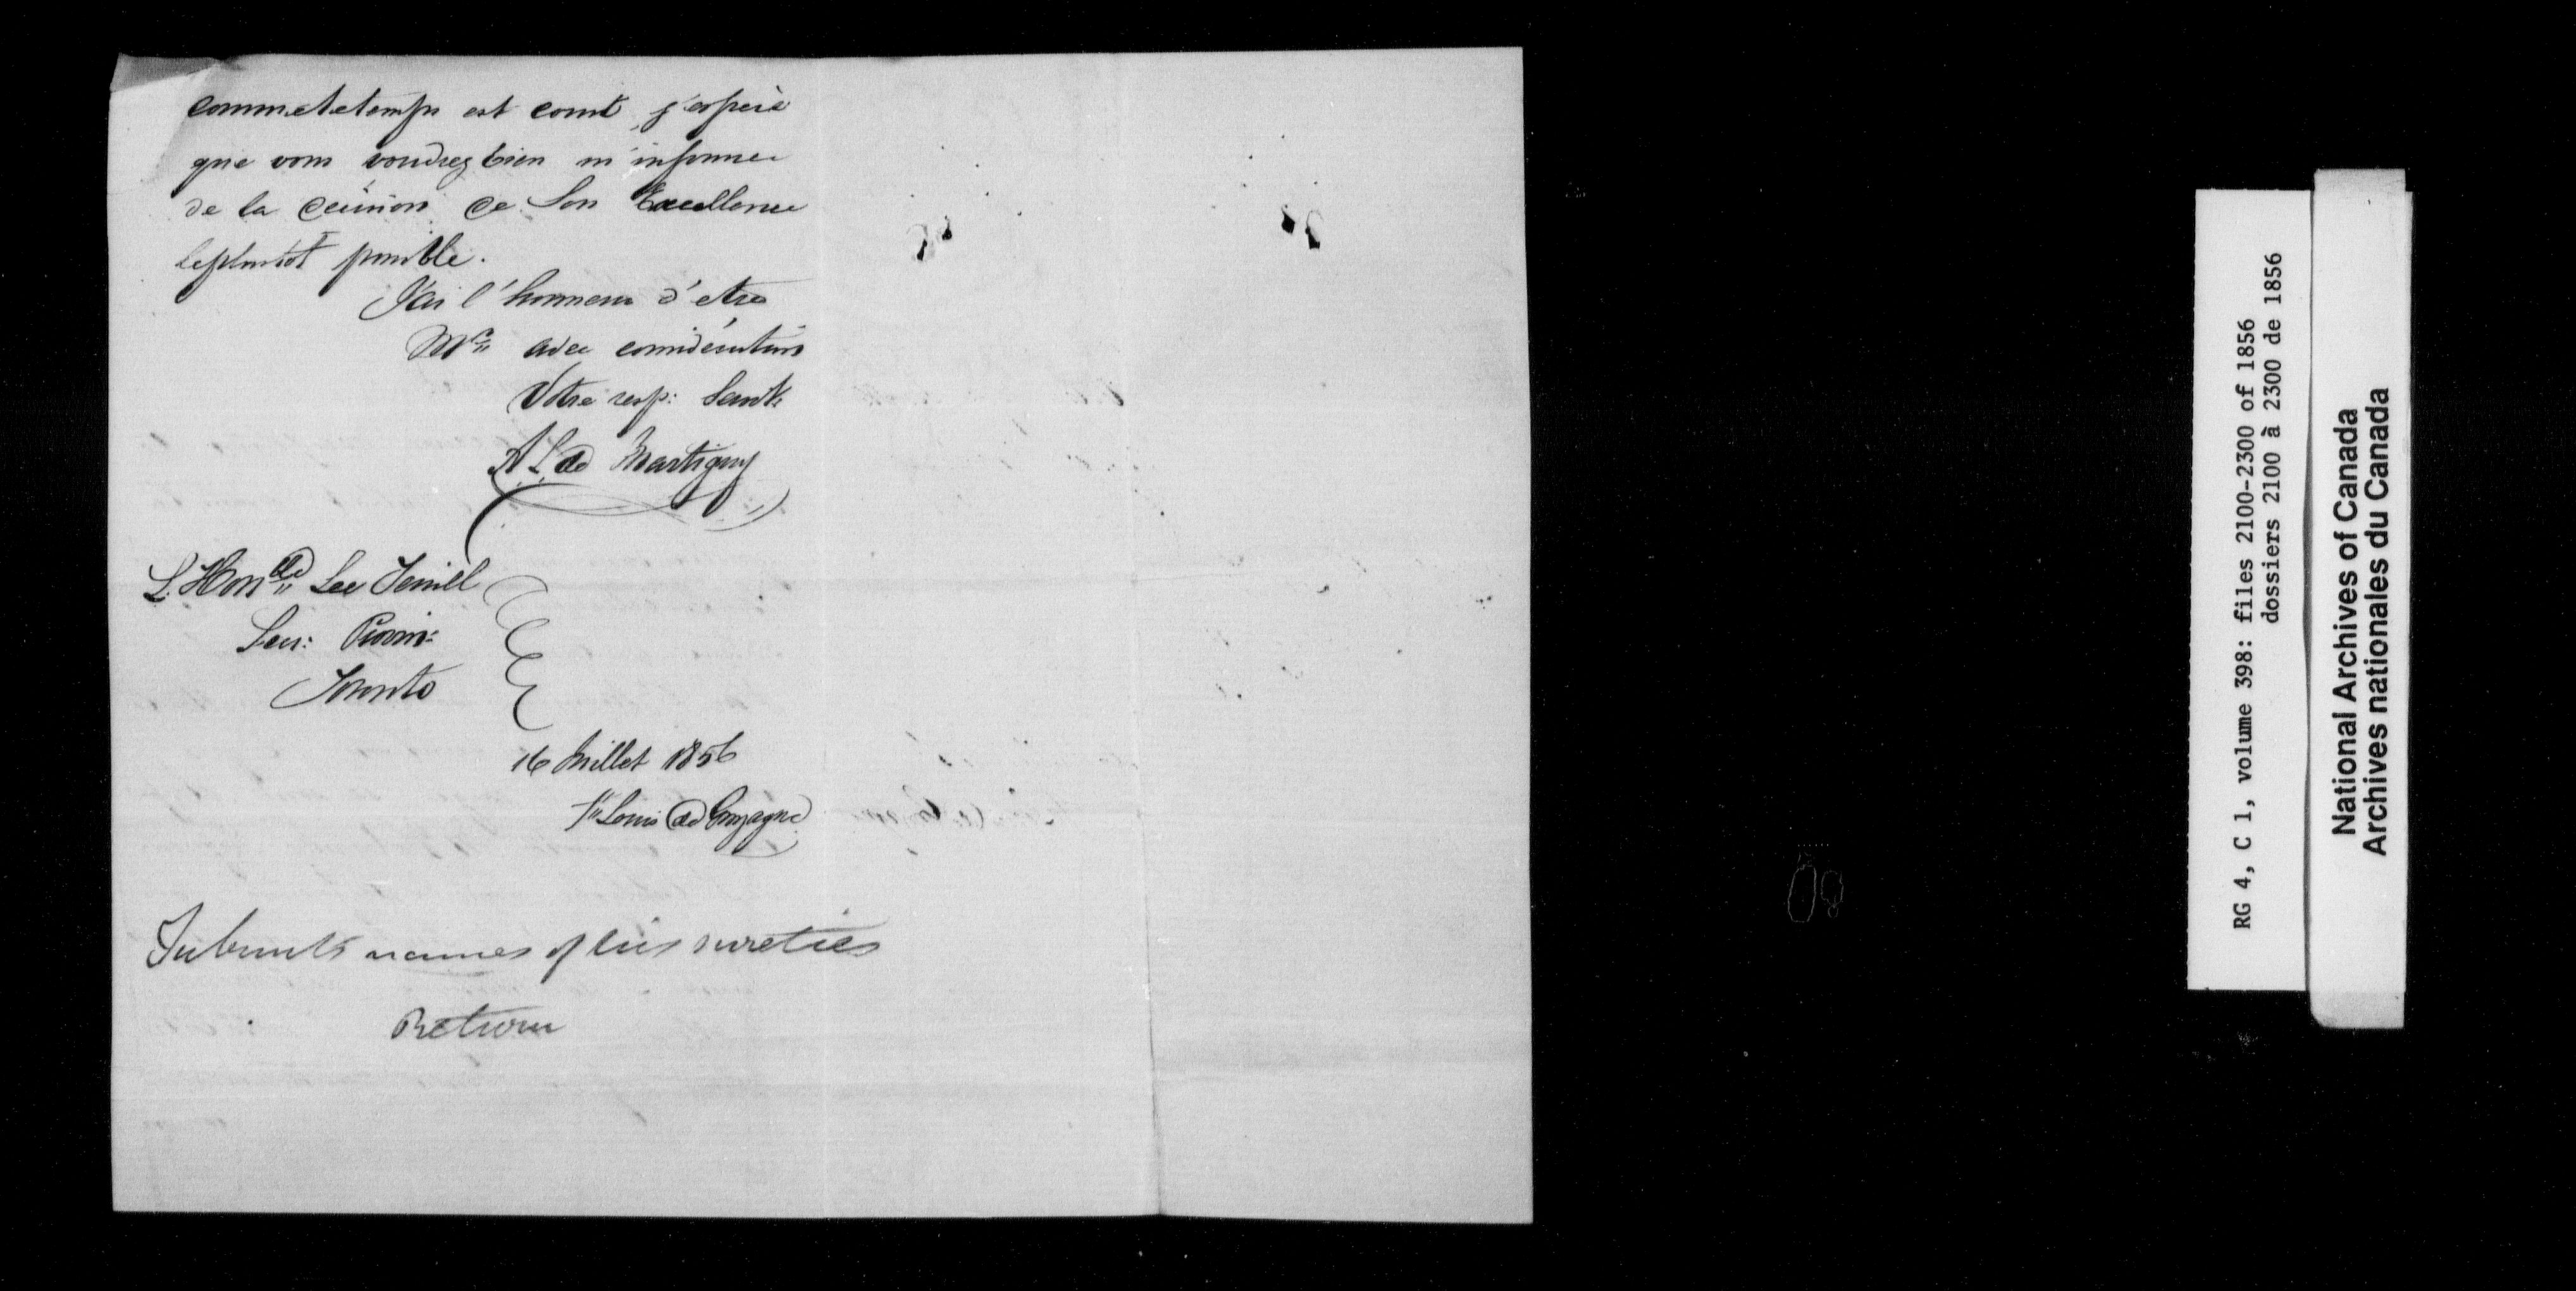 Comme le temps est court, j'espère
que vous voudrez bien m'informer
de la décision de Son Excellence
le plustôt possible.
J'ai l'honneur d'etre
Mr. avec considération
Votre resp: Servt.
A L de Martigny
L'Honble. Lee Terrill
Secr: Provin:
Toronto
16 Juillet 1856
St. Louis de Gonzague
Submits names of his sureties
Return
RG 4, C 1, volume 398: files 2100-2300 of 1856
dossiers 2100 à 2300 de 1856
National Archives of Canada
Archives nationales du Canada